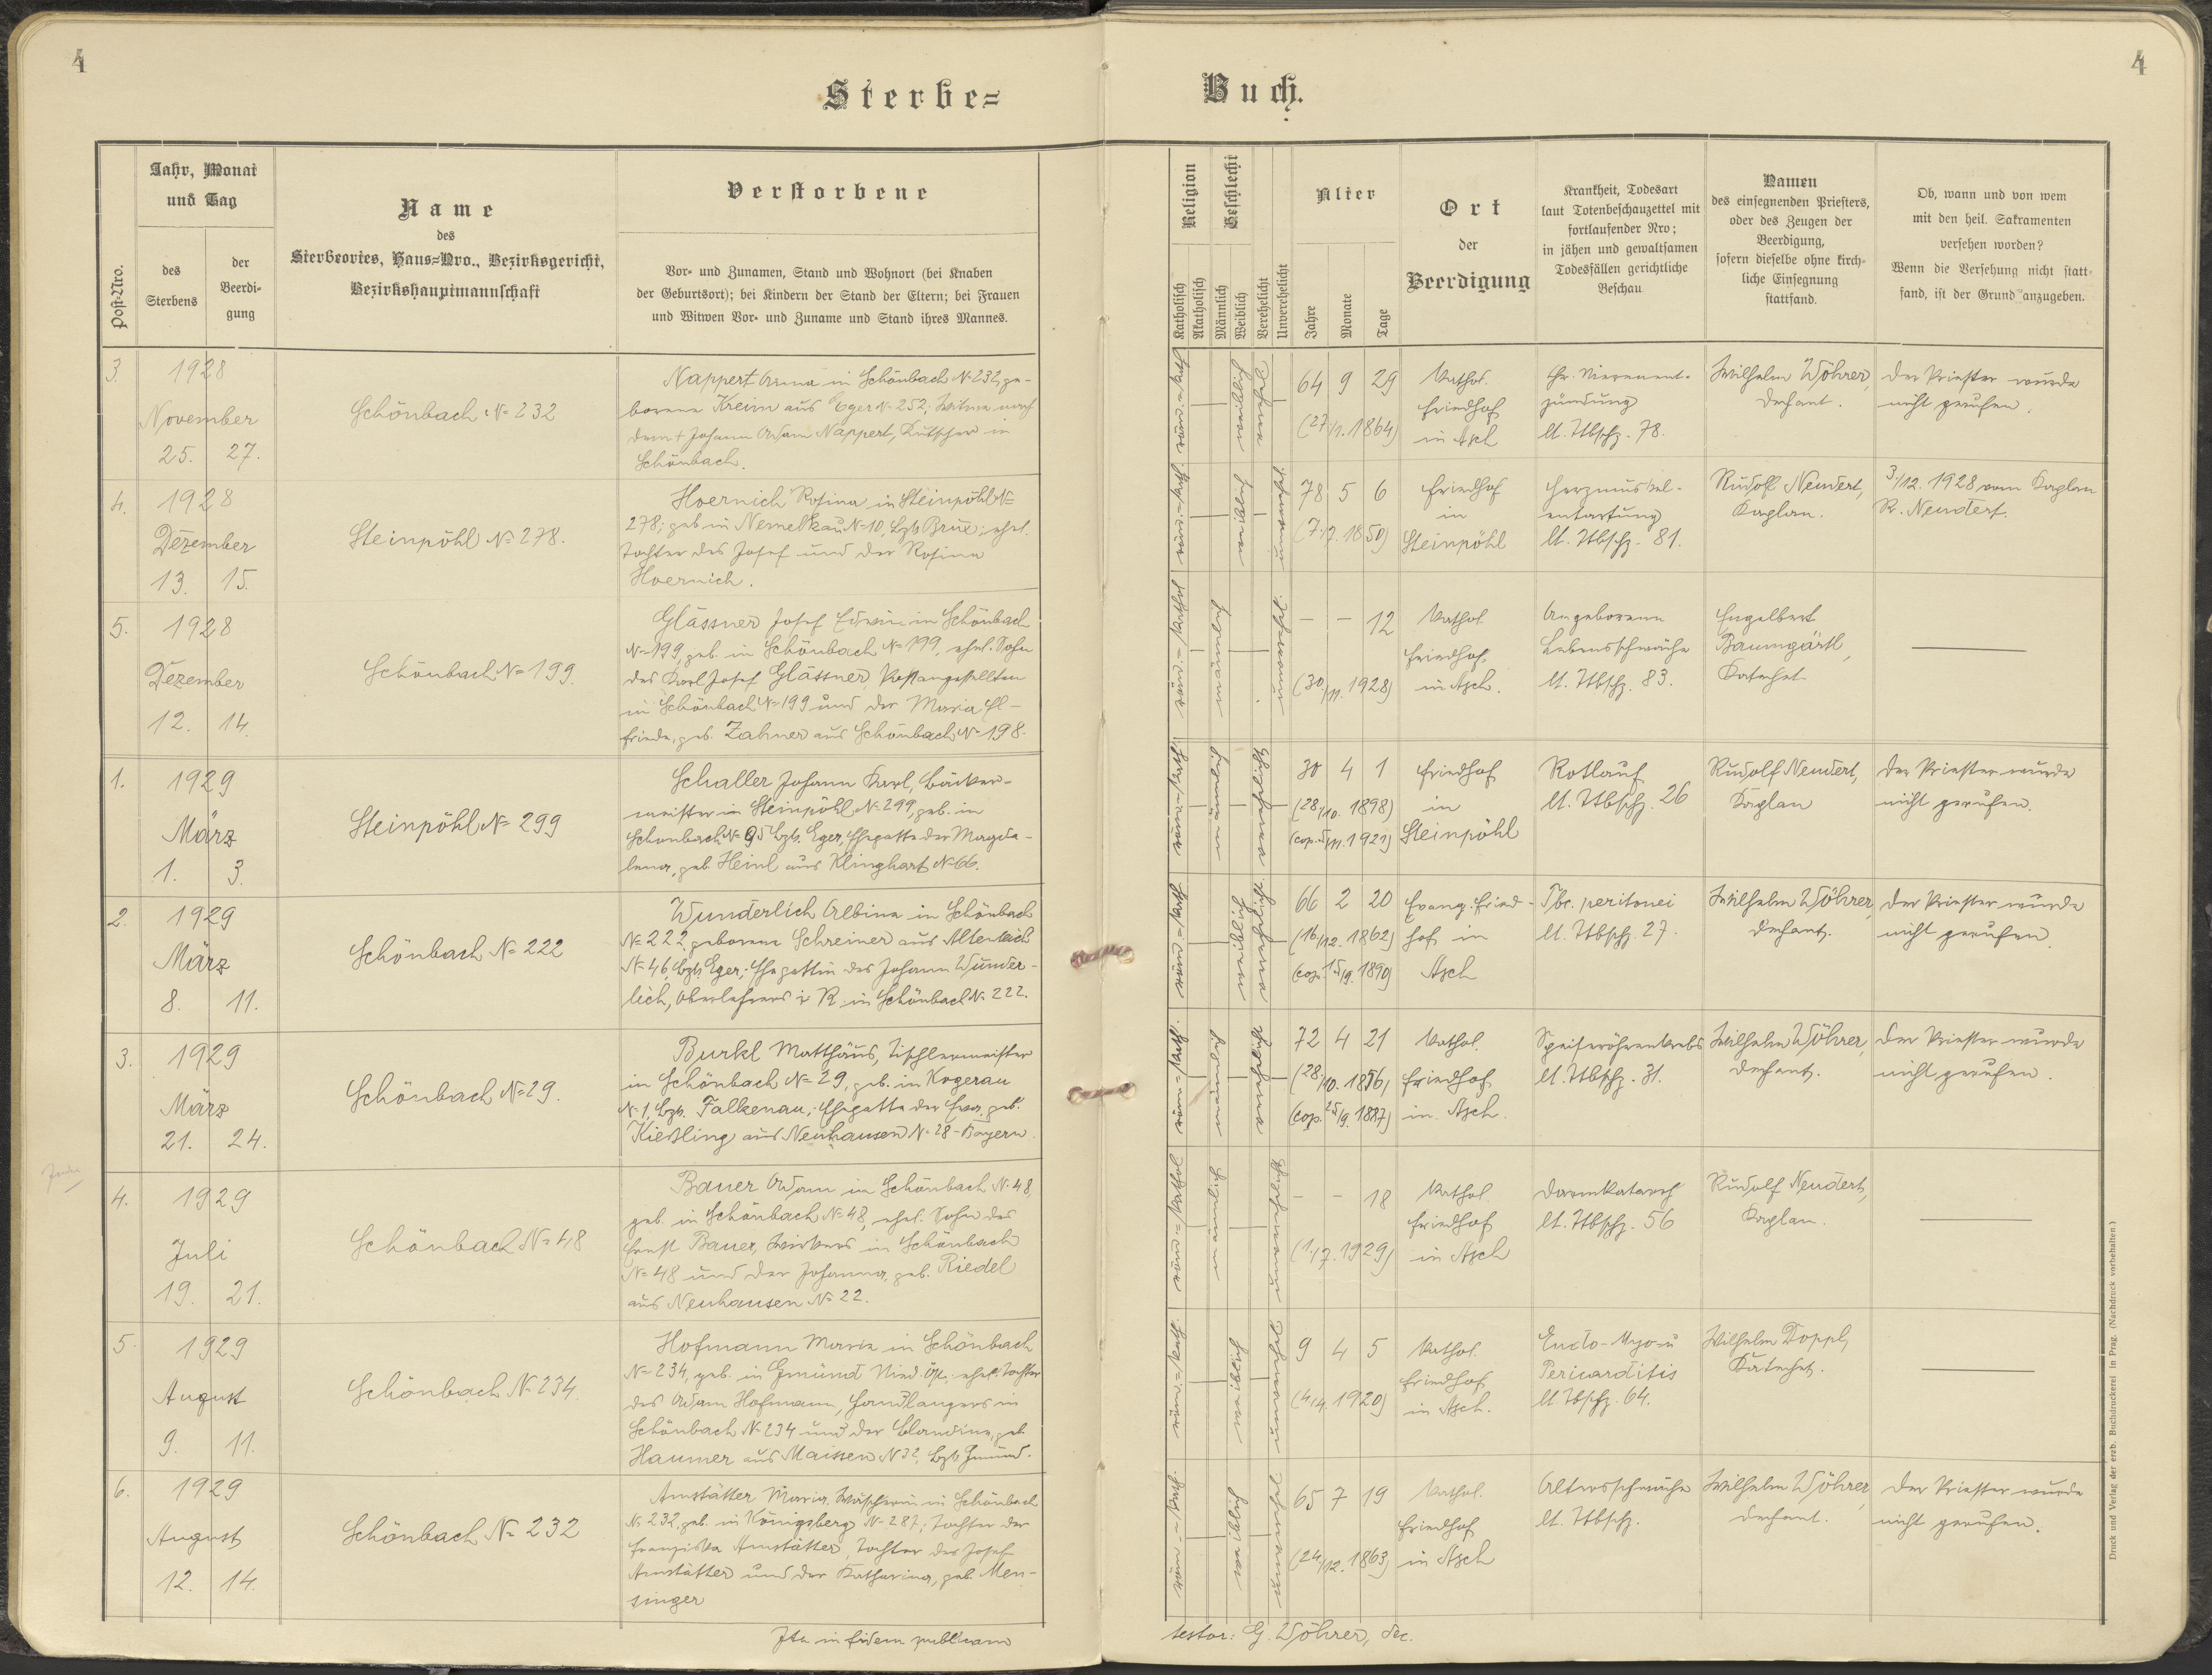 4
4
Sterbe=
Buch.
Post=Nro.
Jahr, Monat
und Tag
des
Sterbens
der
Beerdi-
gung
Name
des
Sterbeortes, Haus=Nro., Bezirksgericht,
Bezirkshauptmannschaft
Verstorbene
Vor- und Zunamen, Stand und Wohnort (bei Knaben
der Geburtsort); bei Kindern der Stand der Eltern; bei Frauen
und Witwen Vor- und Zuname und Stand ihres Mannes.
Religion
Katholisch
Akatholisch
Geschlecht
Männlich
Weiblich
Verehelicht
Unverehelicht
Alter
Jahre
Monate
Tage
Ort
der
Beerdigung
Krankheit, Todesart
laut Totenbeschauzettel mit
fortlaufender Nro;
in jähen und gewaltsamen
Todesfällen gerichtliche
Beschau
Namen
des einsegnenden Priesters,
oder des Zeugen der
Beerdigung,
sofern dieselbe ohne kirch-
liche Einsegnung
stattfand.
Ob, wann und von wem
mit den heil. Sakramenten
versehen worden?
Wenn die Versehung nicht statt-
fand, ist der Grund anzugeben.
3.
1928
November
25. 27.
Schönbach N= 232
Nappert Anna in Schönbach N=232, ge-
borene Kreim aus Eger N=252; Witwe nach
dem + Johann Adam Nappert, Kutscher in
Schönbach.
röm.=kath.
weiblich
Witwe
64 9 29
(27/1. 1864)
Kathol.
Friedhof
in Asch
Chr. Nierenent-
zündung
lt. Ttbschz. 78.
Wilhelm Wöhrer,
Dechant.
Der Priester wurde
nicht gerufen.
4.
1928
Dezember
13. 15.
Steinpöhl N= 278.
Hoernich Rosina in Steinpöhl N=
278; geb. in Nemelkau N=10, Bzk. Brüx; ehel.
Tochter des Josef und der Rosina
Hoernich.
röm.=kath.
weiblich
unverehel.
78 5 6
(7./7. 1850)
Friedhof
in
Steinpöhl
Herzmuskel-
entartung
lt. Ttbschz. 81.
Rudolf Neudert,
Kaplan.
3/12. 1928 vom Kaplan
R. Neudert.
5.
1928
Dezember
12. 14.
Schönbach N= 199.
Glässner Josef Edwin in Schönbach
N=199, geb. in Schönbach N=199, ehel. Sohn
des Karl Josef Glässner, Postangestellten
in Schönbach N=199 und der Maria El-
friede, geb. Zahner aus Schönbach N=198.
röm.=kathol.
männlich
unverehel.
- - 12
(30/11. 1928)
Kathol.
Friedhof
in Asch.
Angeborene
Lebensschwäche
lt. Ttbschz. 83.
Engelbert
Baumgärtl,
Katechet.
1.
1929
März
1. 3.
Steinpöhl N= 299
Schaller Johann Karl, Bäcker-
meister in Steinpöhl N=299, geb. in
Schönbach N=95 Bzk. Eger, Ehegatte der Magda-
lena, geb. Heinl aus Klinghart N=66.
röm.=kath.
männlich
verehelicht
30 4 1
(28/10. 1898)
(cop. 5/11. 1921)
Friedhof
in
Steinpöhl
Rotlauf
lt. Ttbschz. 26
Rudolf Neudert,
Kaplan
Der Priester wurde
nicht gerufen.
2.
1929
März
8. 11.
Schönbach N= 222
Wunderlich Albine in Schönbach
N=222, geborene Schreiner aus Altenteich
N=46, Bzk Eger; Ehegattin des Johann Wunder-
lich, Oberlehrers i. R. in Schönbach N=222.
röm.=kath.
weiblich
verehelicht
66 2 20
(16/12. 1862)
(cop. 15/9. 1890)
Evang. Fried-
hof in
Asch
Tbc. peritonei
lt. Ttbschz. 27.
Wilhelm Wöhrer,
Dechant.
Der Priester wurde
nicht gerufen.
3.
1929
März
21. 24.
Schönbach N=29.
Burkl Matthäus, Tischlermeister
in Schönbach N=29, geb. in Kogerau
N=1, Bzk. Falkenau; Ehegatte der Eva, geb.
Kießling aus Neuhausen N=28 - Bayern.
röm.=kath.
männlich
verehelicht
72 4 21
(28/10. 1856,
(cop. 25/9. 1887)
Kathol.
Friedhof
in Asch.
Speiseröhrenkrebs
lt. Ttbschz. 31.
Wilhelm Wöhrer,
Dechant.
Der Priester wurde
nicht gerufen.
4.
1929
Juli
19. 21.
Schönbach N=48
Bauer Adam in Schönbach N=48,
geb. in Schönbach N=48, ehel. Sohn des
Ernst Bauer, Wirkers in Schönbach
N=48 und der Johanna, geb. Riedel
aus Neuhausen N=22.
röm.=kathol.
männlich
unverehelicht
- - 18
(1./7. 1929)
Kathol.
Friedhof
in Asch
Darmkatarrh
lt. Ttbschz. 56
Rudolf Neudert,
Kaplan.
5.
1929
August
9. 11.
Schönbach N=234
Hofmann Maria in Schönbach
N=234, geb. in Gmünd Nied. Öst., ehel. Tochter
des Adam Hofmann, Handlangers in
Schönbach N=234 und der Blandine, geb.
Haumer aus Maissen N32, Bzk Gmünd.
röm.=kath.
weiblich
unverehel.
9 4 5
(4/4. 1920)
Kathol.
Friedhof
in Asch.
Endo-Myo- u
Pericarditis
lt. Tbschz. 64.
Wilhelm Doppl,
Katechet.
6.
1929
August
12. 14.
Schönbach N= 232
Amstätter Maria, Wäscherin in Schönbach
N=232, geb. in Königsberg N=287; Tochter der
Franziska Amstätter, Tochter des Josef
Amstätter und der Katharina, geb. Men-
singer
röm.=kath.
weiblich
unverehel.
65 7 19
(24/12. 1863)
Kathol.
Friedhof
in Asch
Altersschwäche
lt. Ttbschz.
Wilhelm Wöhrer,
Dechant.
Der Priester wurde
nicht gerufen.
Ita in fidem publicam
testor: G. Wöhrer, dec.
Druck und Verlag der erzb. Buchdruckerei in Prag. (Nachdruck vorbehalten.)